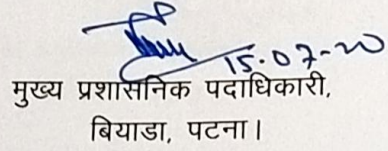 15.07-20
मुख्य प्रशासनिक पदाधिकारी,
बियाडा, पटना।